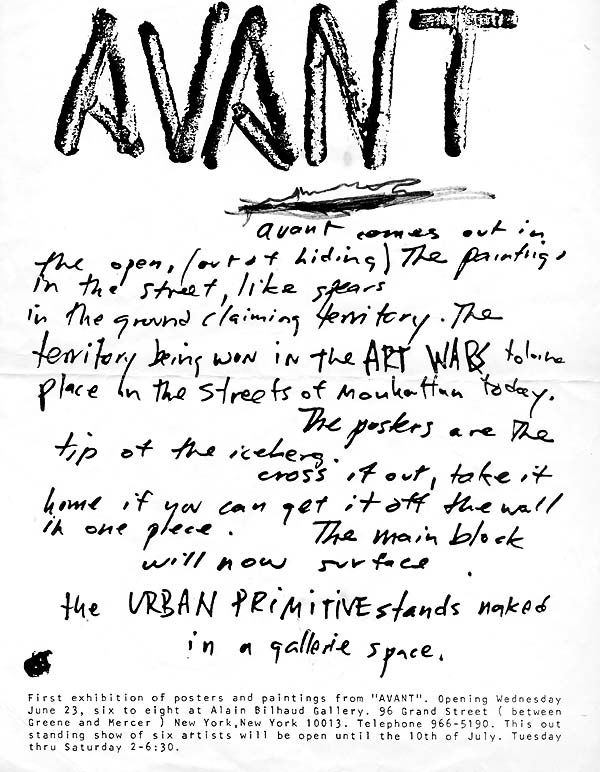 AVANT
avant comes out in
the open, (out of hiding) The paintings
in the street, like spears
in the ground claiming territory. The
territory being won in the ART WARS
place in the streets of Manhattan today.
The posters are The
tip of the iceberg.
cross it out, take it
home if you can get it off the wall
in one piece. The main block
will now surface.
the URBAN PRIMITIVE stands naked
in a gallerie space.
First exhibition of posters and paintings from "AVANT". Opening Wednesday
June 23, six to eight at Alain Bilhaud Gallery. 96 Grand Street ( between
Greene and Mercer ) New York,New York 10013. Telephone 966-5190. This out
standing show of six artists will be open until the 10th of July. Tuesday
thru Saturday 2-6:30.